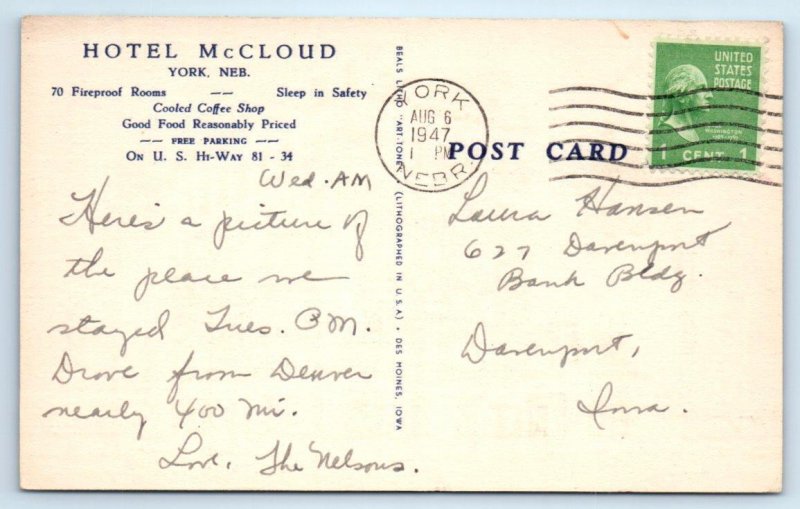 HOTEL McCLOUD
YORK, NEB.
70 Fireproof Rooms -- Sleep in Safety
Cooled Coffee Shop
Good Food Reasonably Priced
-- FREE PARKING --
ON U. S. HI-WAY 81 - 34
Wed. AM
Here's a picture of
the place we
stayed Tues. PM.
Drove from Denver
nearly 400 mi.
Love, The Nelsons.
BEALS LITHO "ART-TONE" • (LITHOGRAPHED IN U.S.A.) • DES MOINES, IOWA
YORK
AUG 6
1947
1 PM
NEBR.
POST CARD
UNITED
STATES
POSTAGE
WASHINGTON
1 CENT 1
Laura Hansen
627 Davenport
Bank Bldg.
Davenport,
Iowa.